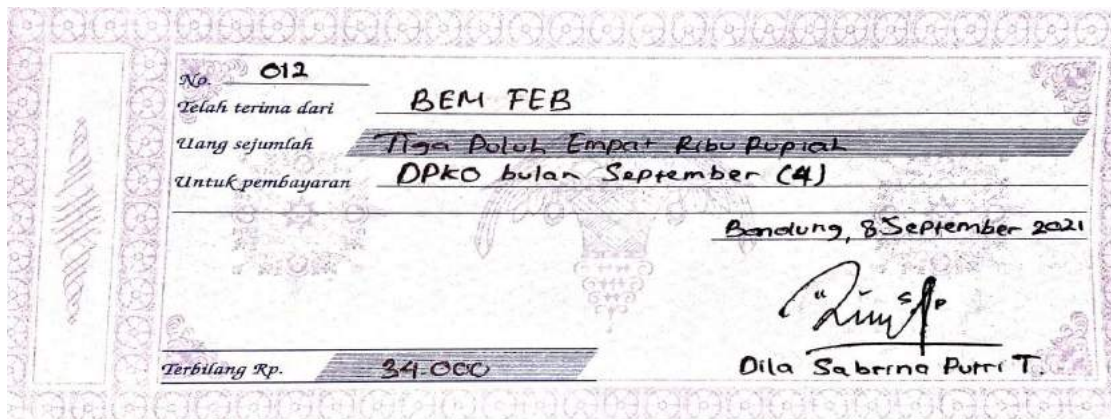 No. 012
Telah terima dari BEM FEB
Uang sejumlah Tiga Puluh Empat Ribu Rupiah
Untuk pembayaran DPKO bulan September (4)
Bandung, 8 September 2021
Terbilang Rp. 34.000
Dila Sabrina Putri T.